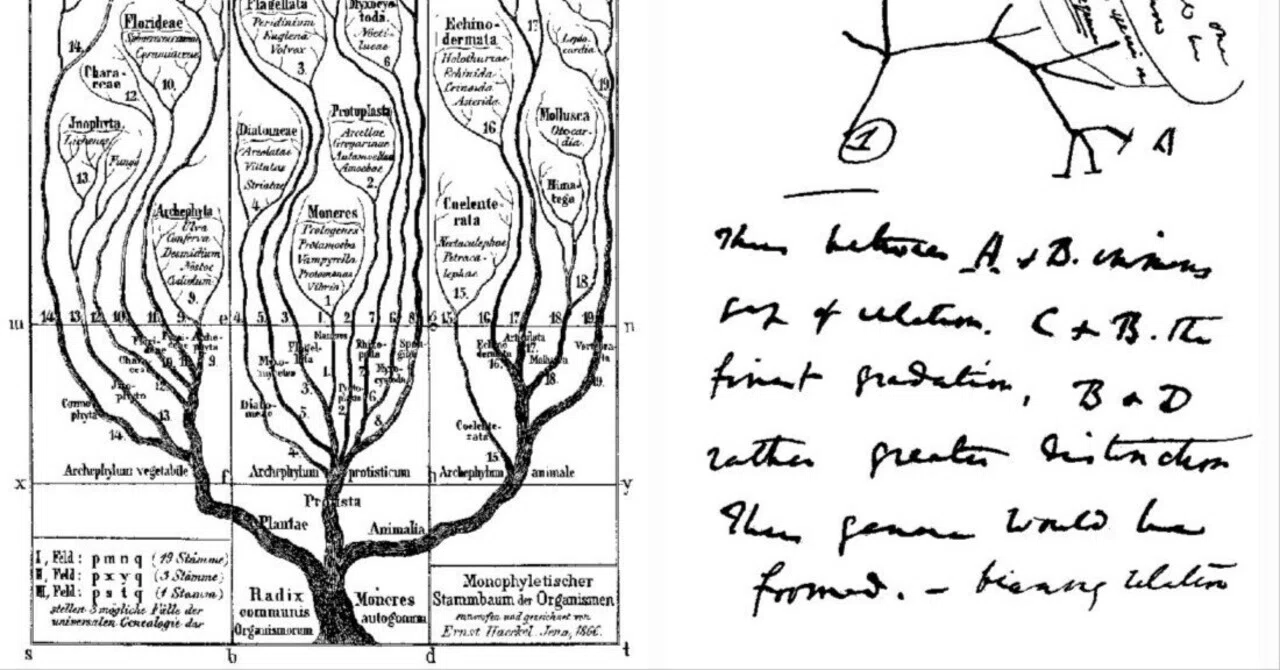 Florideae
Ceramiaceae
14.
10.
Characeae
12.
Jnophyta
Lichenes
Fungi
13.
Archephyta
Ulva
Conferva
Desmidium
Nostoc
Codiolum
9.
Flagellata
Peridinium
Euglena
Volvox
3.
Myxocystoda.
Noctilucae
6
Diatomeae
Areolatae
Vittatae
Striatae
4.
Protoplasta
Arcellae
Gregarinae
Autamoebae
Amoebae
2.
Moneres
Protogenes
Protamoeba
Vampyrella
Protomonas
Vibrio
1.
Echinodermata
Holothuriae
Echinida
Crinoida
Asterida
16
17.
Leptocardia
19.
Mollusca
Otocardia.
Himatega
18.
Coelenterata
Nectacalephae
Petracalephae
15.
m
14. 13. 12. 10. 11. 9.
4. 5. 3. 1. 2. 7. 6. 8.
15. 16. 17. 18. 19.
n
Cormophyta
14.
13.
Diatomeae
4.
5.
3.
1.
2.
6.
8.
Coelenterata
15
16.
17.
Mollusca
18.
19.
x
Archephylum vegetabile
f
Archephylum protisticum
h
Archephylum animale
y
Protista
Plantae
Animalia
I, Feld: p m n q (19 Stämme)
II, Feld: p x y q (3 Stämme)
III, Feld: p s t q (1 Stamm)
stellen 3 mögliche Fälle der
universalen Genealogie dar
Radix
communis
Organismorum
Moneres
autogonum
Monophyletischer
Stammbaum der Organismen
entworfen und gezeichnet von
Ernst Haeckel. Jena, 1866.
s b d t
1
A
Thus between A & B. immens
gap of relation. C & B. the
finest gradation, B & D
rather greater distinction
Thus genera would be
formed. — bearing relation